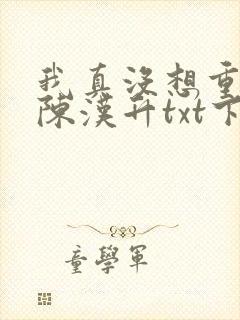 我真没想重
陈漢升txt下
童學軍